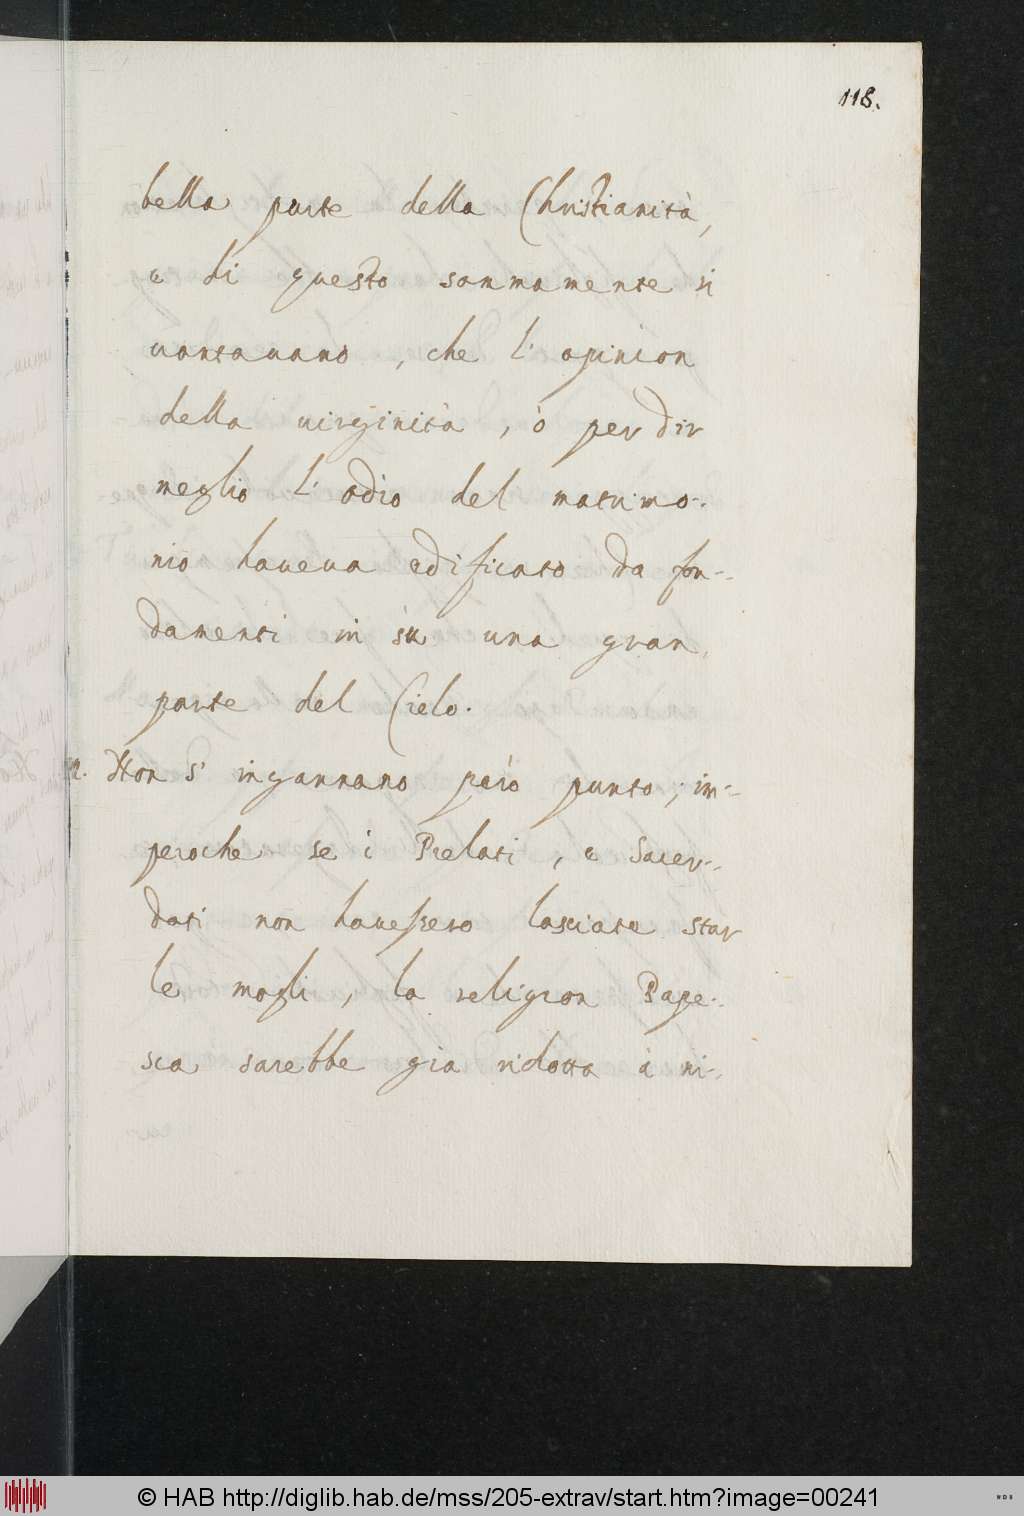 118.
bella parte della Christianità,
e di questo sommamente si
uantauano, che l'opinion
della uirginità, ò per dir
meglio l'odio del matrimo-
nio haueua edificato da fon-
damenti in sù una gran
parte del Cielo.
R. Non s'ingannano però punto; im-
peroche se i Prelati, e Sacer-
doti non hauessero lasciate star
le mogli, la religion Pape-
sca sarebbe gia ridotta à ni-
© HAB http://diglib.hab.de/mss/205-extrav/start.htm?image=00241